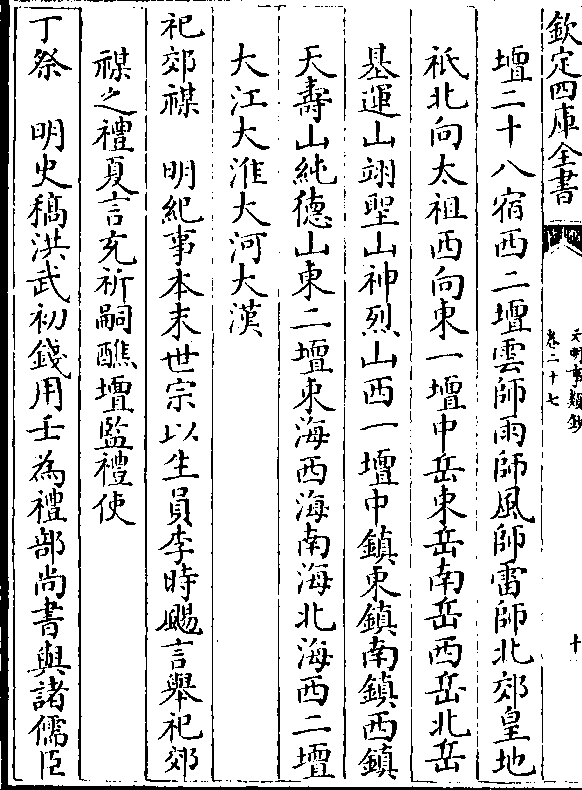 欽定四庫全書
卷二十七
十
壇二十八宿西二壇雲師雨師風師雷師北郊皇地
祇北向太祖西向東一壇中岳東岳南岳西岳北岳
基運山翊聖山神烈山西一壇中鎮東鎮南鎮西鎮
天壽山純德山東二壇東海西海南海北海西二壇
大江大淮大河大漢
祀郊禖　明紀事本末世宗以生員李時颺言舉祀郊
禖之禮夏言充祈嗣醮壇監禮使
丁祭　明史稿洪武初錢用壬為禮部尚書與諸儒臣